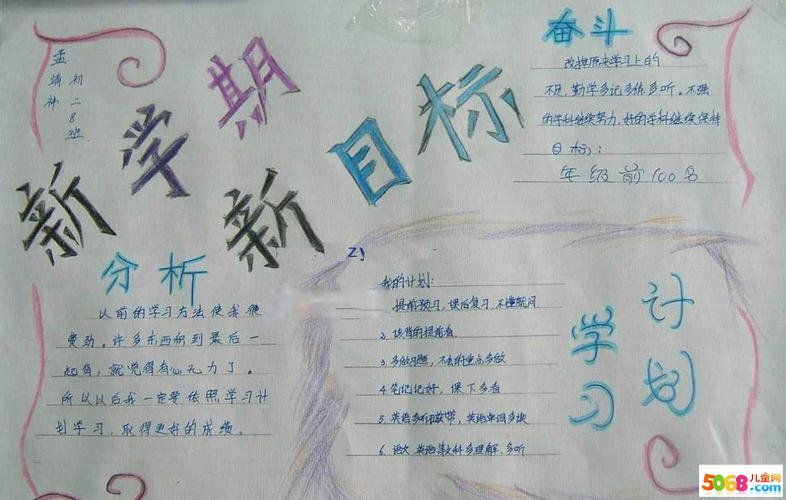 初二8班
新学期
新目标
奋斗
改掉原来学习上的
不足,勤学多记多练多听。不强
的学科继续努力,好的学科继续保持
目标:
年级前100名
分析
以前的学习方法使我很
费劲。许多东西积到最后一
起背,就觉得有心无力了。
所以以后我一定要依照学习计
划学习,取得更好的成绩。
学习
计划
我的计划:
提前预习,课后复习,不懂就问
2. 该背的提前背
3. 多做习题,不会的重点多做
4. 笔记记好,课下多看
5. 英语多听磁带,英语单词多读
6. 语文 英语等文科多理解,多听
5068儿童网
.com